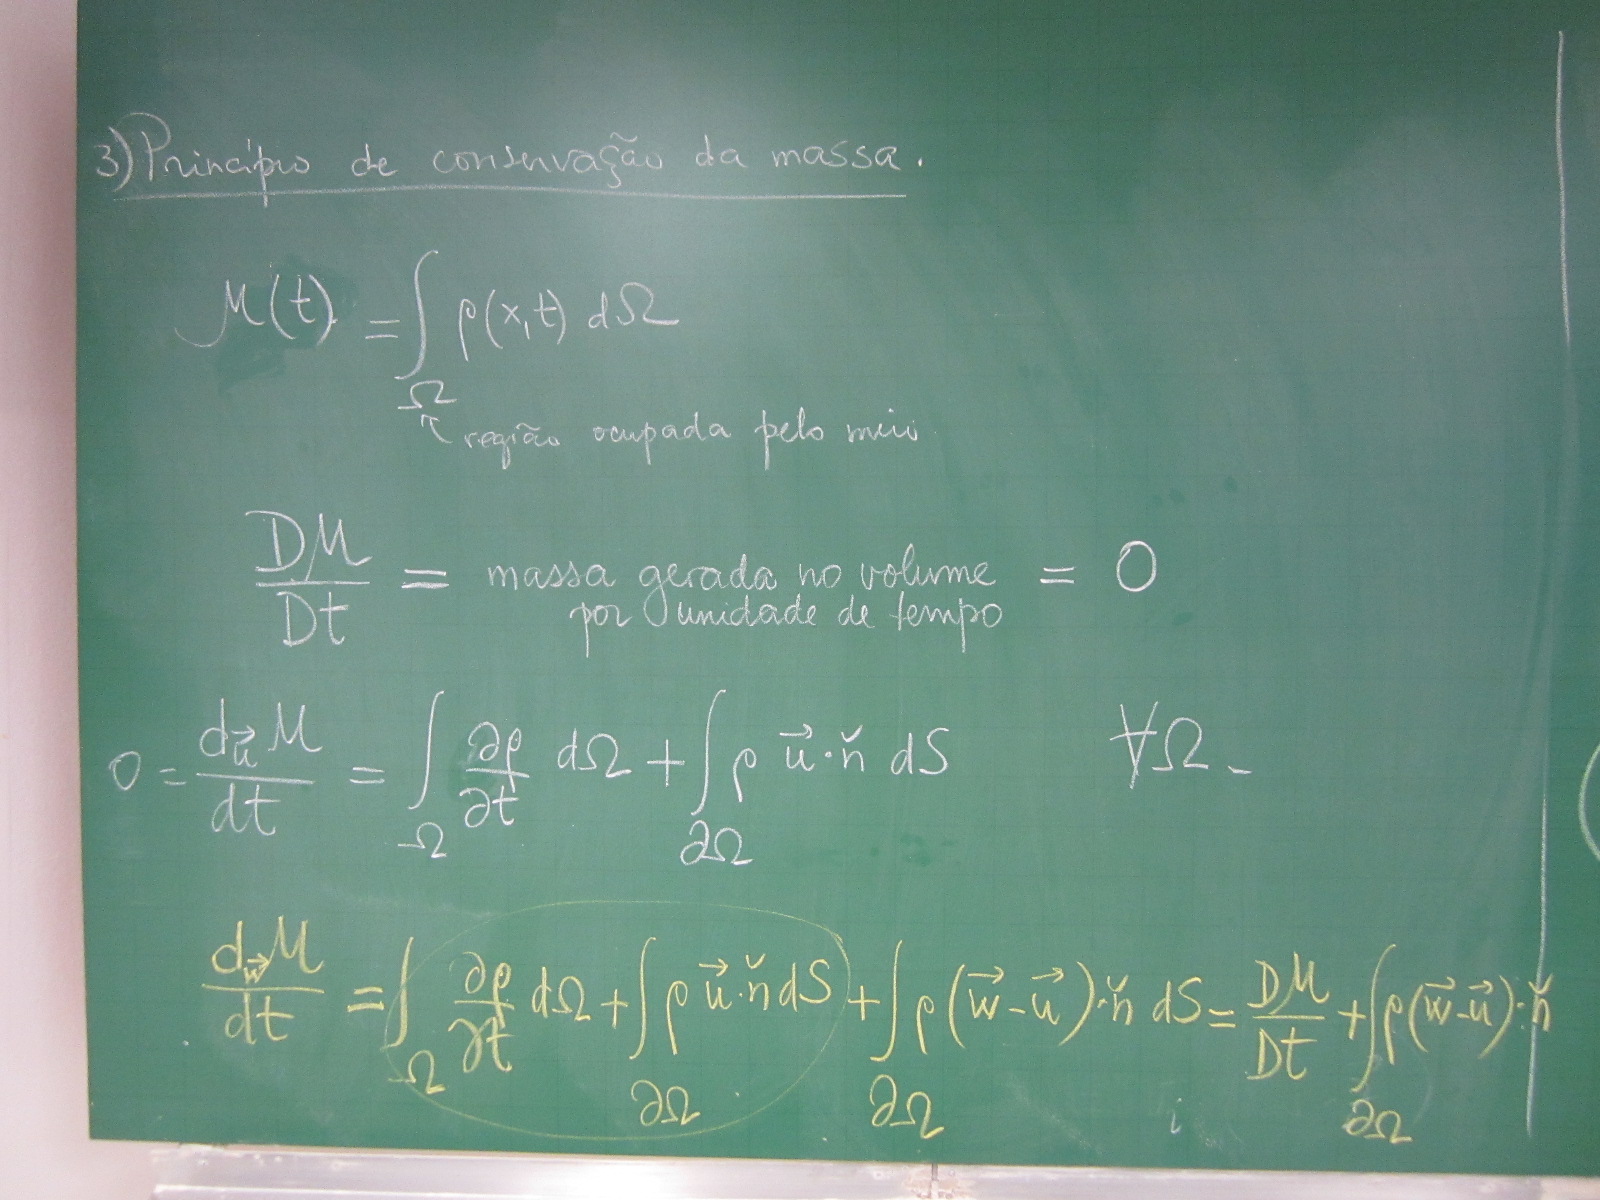 3) Princípio de conservação da massa.
M(t) = ∫_Ω ρ(x,t) dΩ
↖ região ocupada pelo meio
DM/Dt = massa gerada no volume por unidade de tempo = 0
0 = d_{\vec{u}}M/dt = ∫_Ω ∂ρ/∂t dΩ + ∫_{∂Ω} ρ \vec{u}·\check{n} dS ∀Ω.
d_{\vec{w}}M/dt = ∫_Ω ∂ρ/∂t dΩ + ∫_{∂Ω} ρ \vec{u}·\check{n} dS + ∫_{∂Ω} ρ(\vec{w}-\vec{u})·\check{n} dS = DM/Dt + ∫_{∂Ω} ρ(\vec{w}-\vec{u})·\check{n}